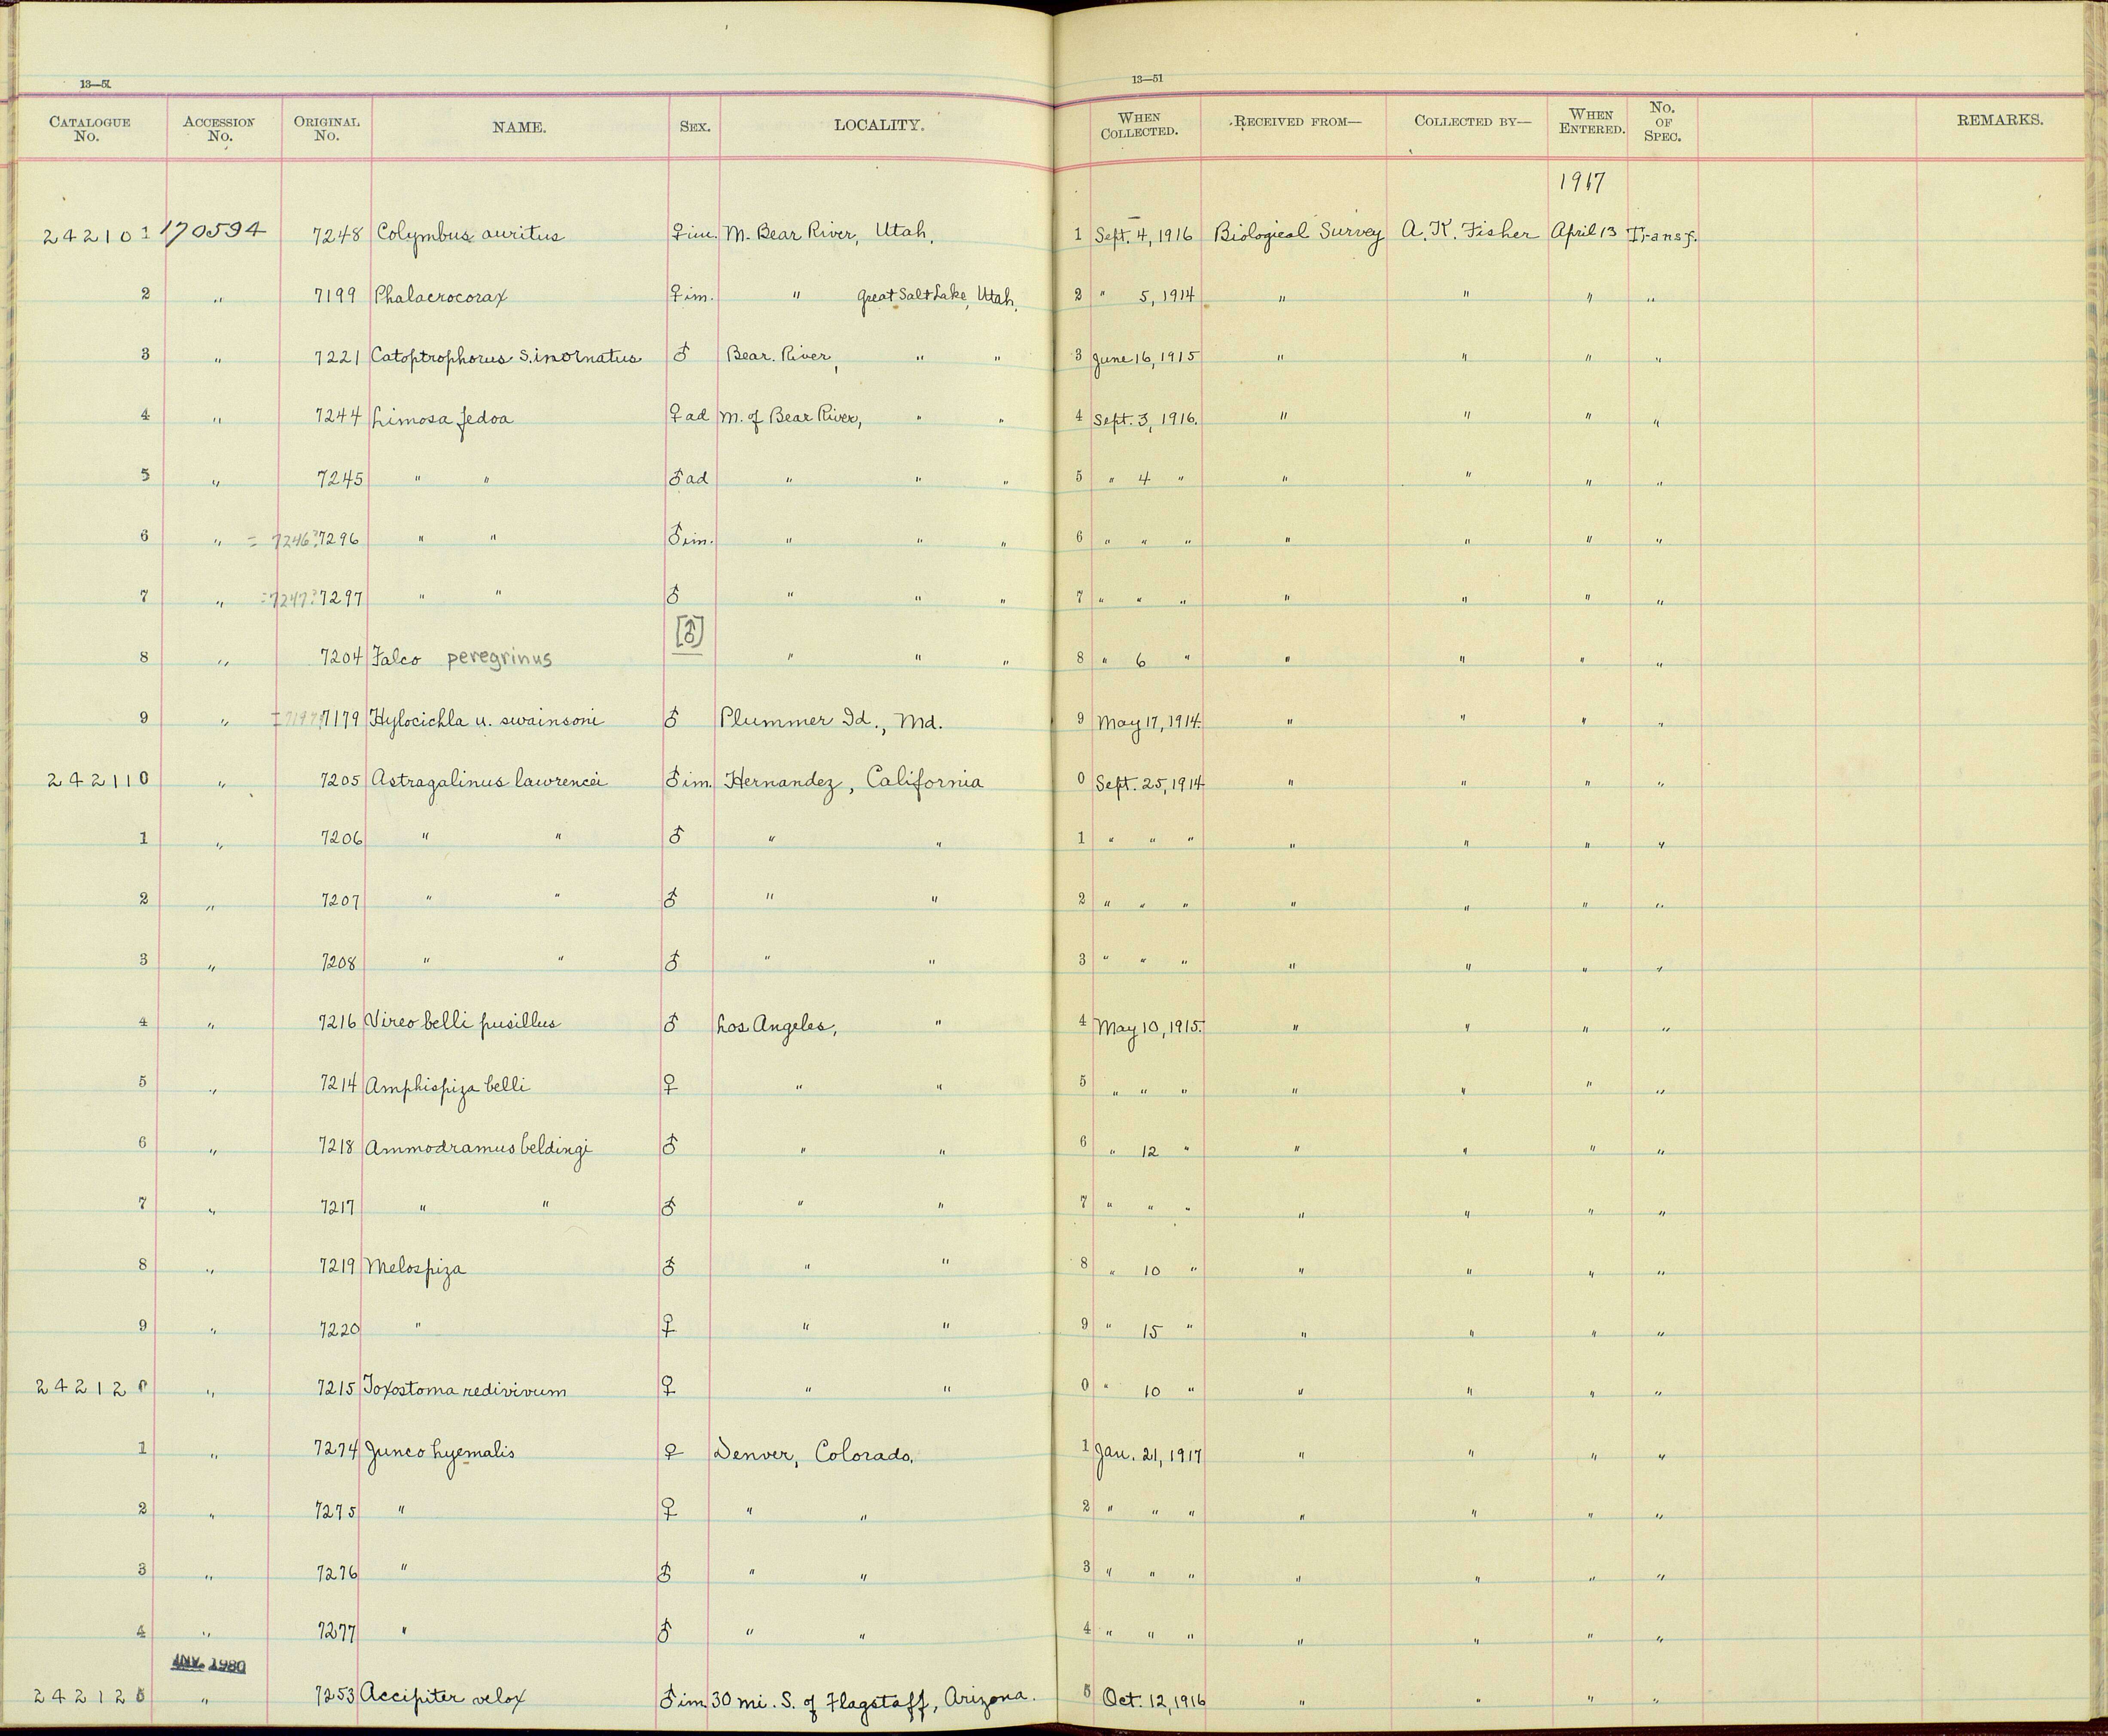 13—51 13—51
CATALOGUE No. ACCESSION No. ORIGINAL No. NAME. SEX. LOCALITY. WHEN COLLECTED. RECEIVED FROM— COLLECTED BY— WHEN ENTERED. No. OF SPEC. REMARKS.
1917
242101 170594 7248 Colymbus auritus ♀im. M. Bear River, Utah, 1 Sept. 4, 1916 Biological Survey A. K. Fisher April 13 Transf.
2 " 7199 Phalacrocorax ♀im. " Great Salt Lake, Utah, 2 " 5, 1914 " " " "
3 " 7221 Catoptrophorus s. inornatus ♂ Bear. River, " " 3 June 16, 1915 " " " "
4 " 7244 Limosa fedoa ♀ad M. of Bear River, " " 4 Sept. 3, 1916. " " " "
5 " 7245 " " ♂ad " " " 5 " 4 " " " " "
6 " = 7246? 7296 " " ♂im. " " " 6 " " " " " " "
7 " =7247? 7297 " " ♂ " " " 7 " " " " " " "
8 " 7204 Falco peregrinus [♂] " " " 8 " 6 " " " " "
9 " 7179 Hylocichla u. swainsoni ♂ Plummer Id., Md. 9 May 17, 1914. " " " "
242110 " 7205 Astragalinus lawrencei ♂im. Hernandez, California 0 Sept. 25, 1914 " " " "
1 " 7206 " " ♂ " " 1 " " " " " " "
2 " 7207 " " ♂ " " 2 " " " " " " "
3 " 7208 " " ♂ " " 3 " " " " " " "
4 " 7216 Vireo belli pusillus ♂ Los Angeles, " 4 May 10, 1915. " " " "
5 " 7214 Amphispiza belli ♀ " " 5 " " " " " " "
6 " 7218 Ammodramus beldingi ♂ " " 6 " 12 " " " " "
7 " 7217 " " ♂ " " 7 " " " " " " "
8 " 7219 Melospiza ♂ " " 8 " 10 " " " " "
9 " 7220 " ♀ " " 9 " 15 " " " " "
242120 " 7215 Toxostoma redivivum ♀ " " 0 " 10 " " " " "
1 " 7274 Junco hyemalis ♀ Denver, Colorado. 1 Jan. 21, 1917 " " " "
2 " 7275 " ♀ " " 2 " " " " " " "
3 " 7276 " ♂ " " 3 " " " " " " "
4 " 7277 " ♂ " " 4 " " " " " " "
INV. 1980
242125 " 7253 Accipiter velox ♂im 30 mi. S. of Flagstaff, Arizona. 5 Oct. 12, 1916 " " " "